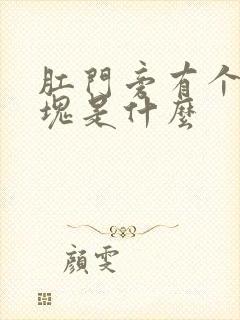 肛門旁有个
塊是什麼
顔雯